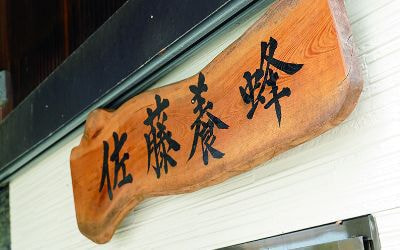 佐藤養蜂